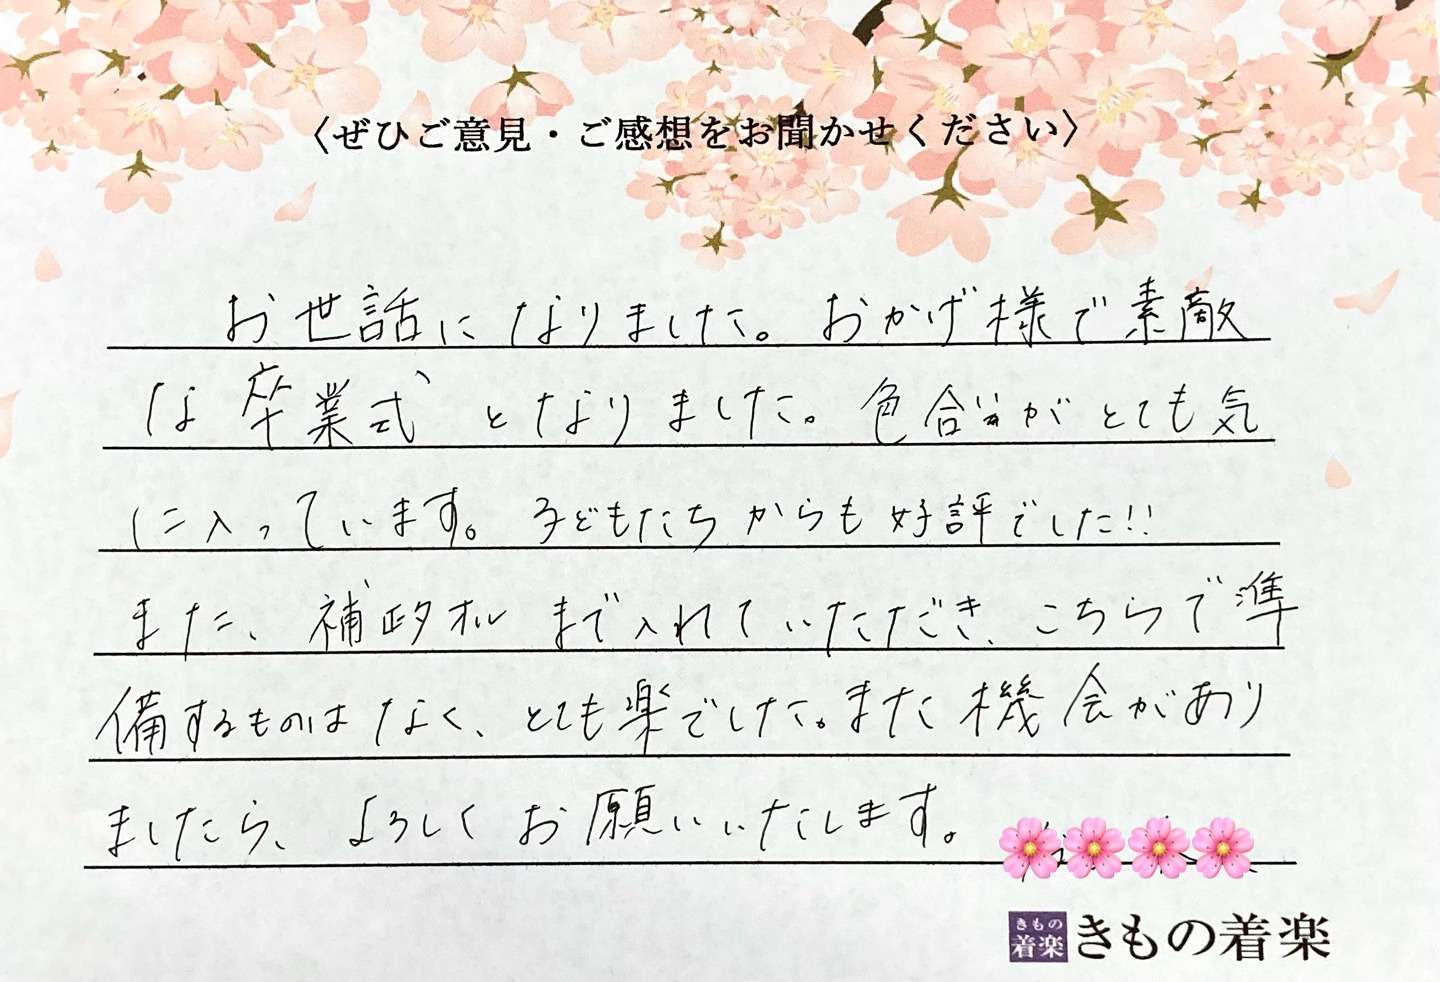 〈ぜひご意見・ご感想をお聞かせください〉
お世話になりました。おかげ様で素敵
な卒業式となりました。色合いがとても気
に入っています。子どもたちからも好評でした!!
また、補正タオルまで入れていただき、こちらで準
備するものはなく、とても楽でした。また機会があり
ましたら、よろしくお願いいたします。
きもの
着楽
きもの着楽